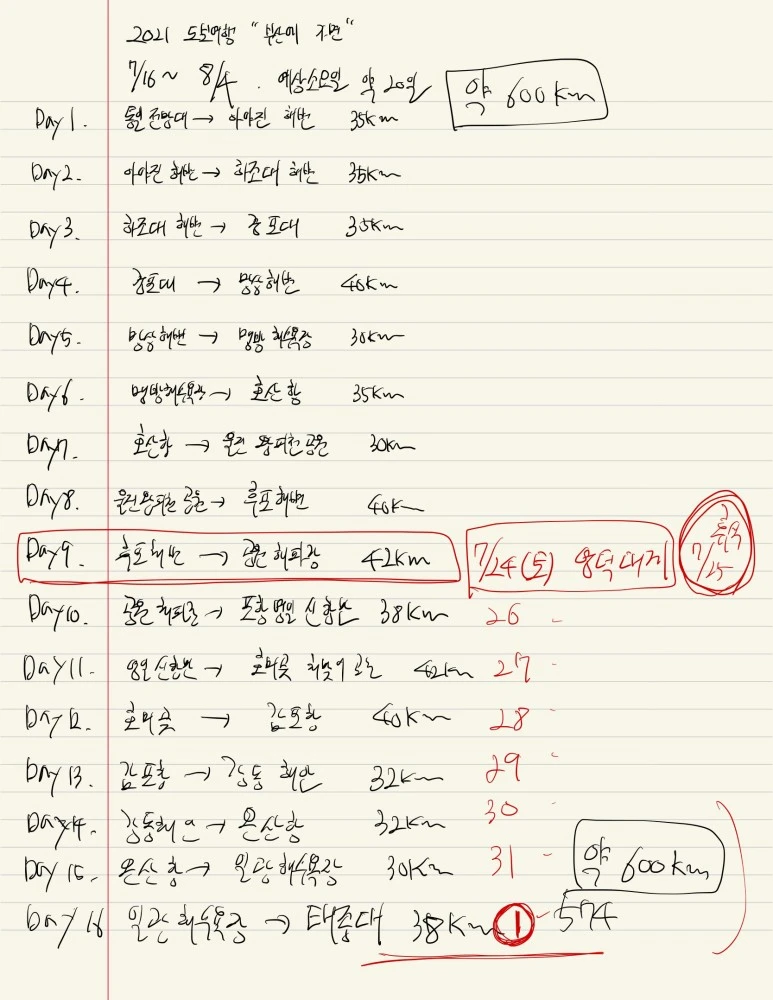 2021 도보여행 "부산에 가면"
7/16 ~ 8/4. 예상소요일 약 20일 약 600km
Day 1. 통일전망대 → 아야진 해변 35km
Day 2. 아야진 해변 → 하조대 해변 35km
Day 3. 하조대 해변 → 경포대 35km
Day 4. 경포대 → 망상해변 40km
Day 5. 망상해변 → 맹방 해수욕장 30km
Day 6. 맹방해수욕장 → 호산항 35km
Day 7. 호산항 → 울진 왕피천공원 30km
Day 8. 울진왕피천 공원 → 후포해변 40km
Day 9. 후포해변 → 해파랑 42km 7/24(토) 영덕대게 휴식 7/25
Day 10. 해파랑 → 포항영일 신항만 38km 26 -
Day 11. 영일신항만 → 호미곶 해맞이 42km 27 -
Day 12. 호미곶 → 감포항 40km 28 -
Day 13. 감포항 → 강동 해안 32km 29 -
Day 14. 강동해안 → 온산항 32km 30 -
Day 15. 온산항 → 일광해수욕장 30km 31 - 약 600km
Day 16 일광해수욕장 → 태종대 38km 1 - 574